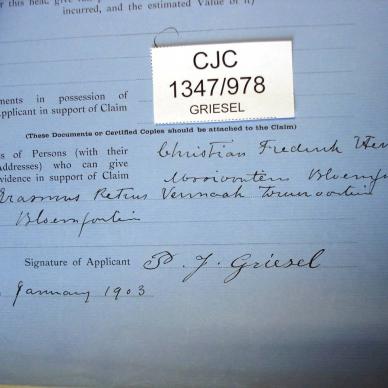 this head, give
incurred, and the estimated Value of it)
CJC
1347/978
GRIESEL
ments in possession of
Applicant in support of Claim
(These Documents or Certified Copies should be attached to the Claim)
s of Persons (with their
Addresses) who can give
vidence in support of Claim
Christian Frederik
Mooifontein Bloemf
Erasmus Petrus Vermaak
Bloemfontein
Signature of Applicant P. J. Griesel
January 1903